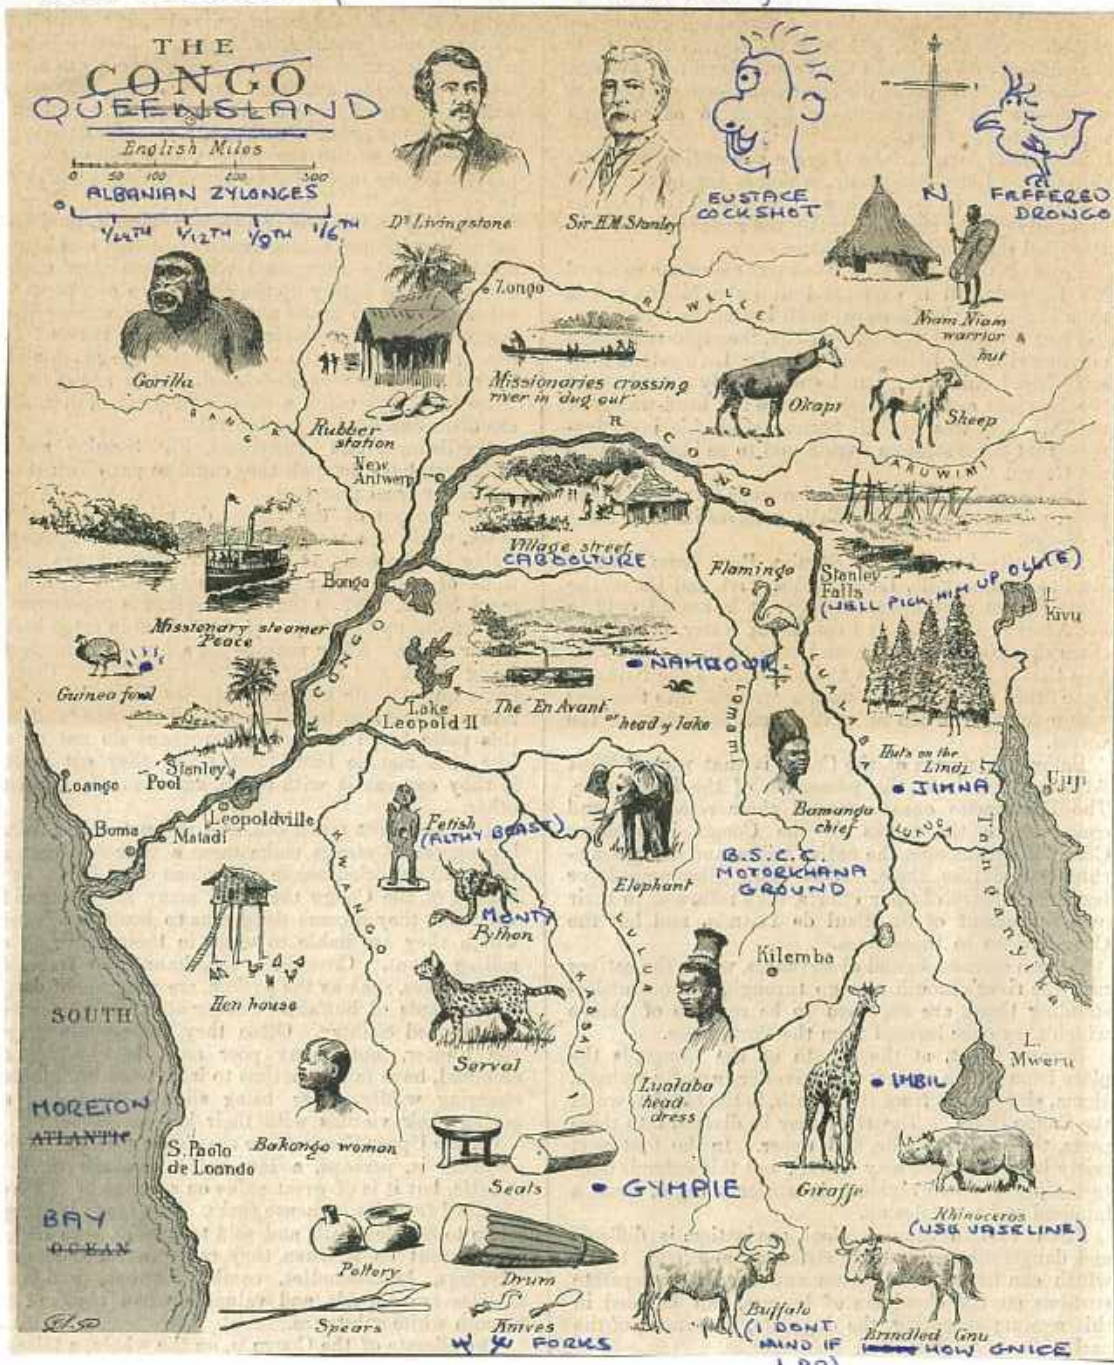 THE
CONGO
QUEENSLAND
English Miles
0 50 100 200 300
ALBANIAN ZYLONGES
0
1/12TH 1/8TH 1/6TH
Dr Livingstone
Sir H.M. Stanley
EUSTACE
COCKSHOT
N
FAFFERED
DRONGO
Niam Niam
warrior &
hut
Gorilla
Zongo
R WELLE
Missionaries crossing
river in dug out
Okapi
Sheep
Rubber
station
SANGA
New
Antwerp
R CONGO
ARUWIMI
Village street
CABOOLTURE
Flamingo
Stanley
Falls
(WELL PICK HIM UP OLLIE)
L.
Kivu
Bongo
Missionary steamer
Peace
Guinea fowl
R CONGO
Lake
Leopold II
The En Avant
NAMBOUR
or head of lake
Lomami
LUALABA
Huts on the
Lindi
JIMNA
Ujiji
Loango
Stanley
Pool
Leopoldville
Boma
Matadi
Fetish
(FILTHY BEAST)
Elephant
Bamanga
chief
LUKUGA
L. Tanganyika
B.S.C.C.
MOTORKHANA
GROUND
MONTY
Python
KWANGO
LULUA
KASSAI
Kilemba
Hen house
Serval
SOUTH
MORETON
ATLANTIC
BAY
OCEAN
Lualaba
head-
dress
L.
Mweru
IMBIL
S. Paolo
de Loando
Bakongo woman
Seats
GYMPIE
Giraffe
Rhinoceros
(USE VASELINE)
Pottery
Drum
Spears
Knives
FORKS
Buffalo
(I DONT
MIND IF
I DO)
Brindled Gnu
HOW GNICE